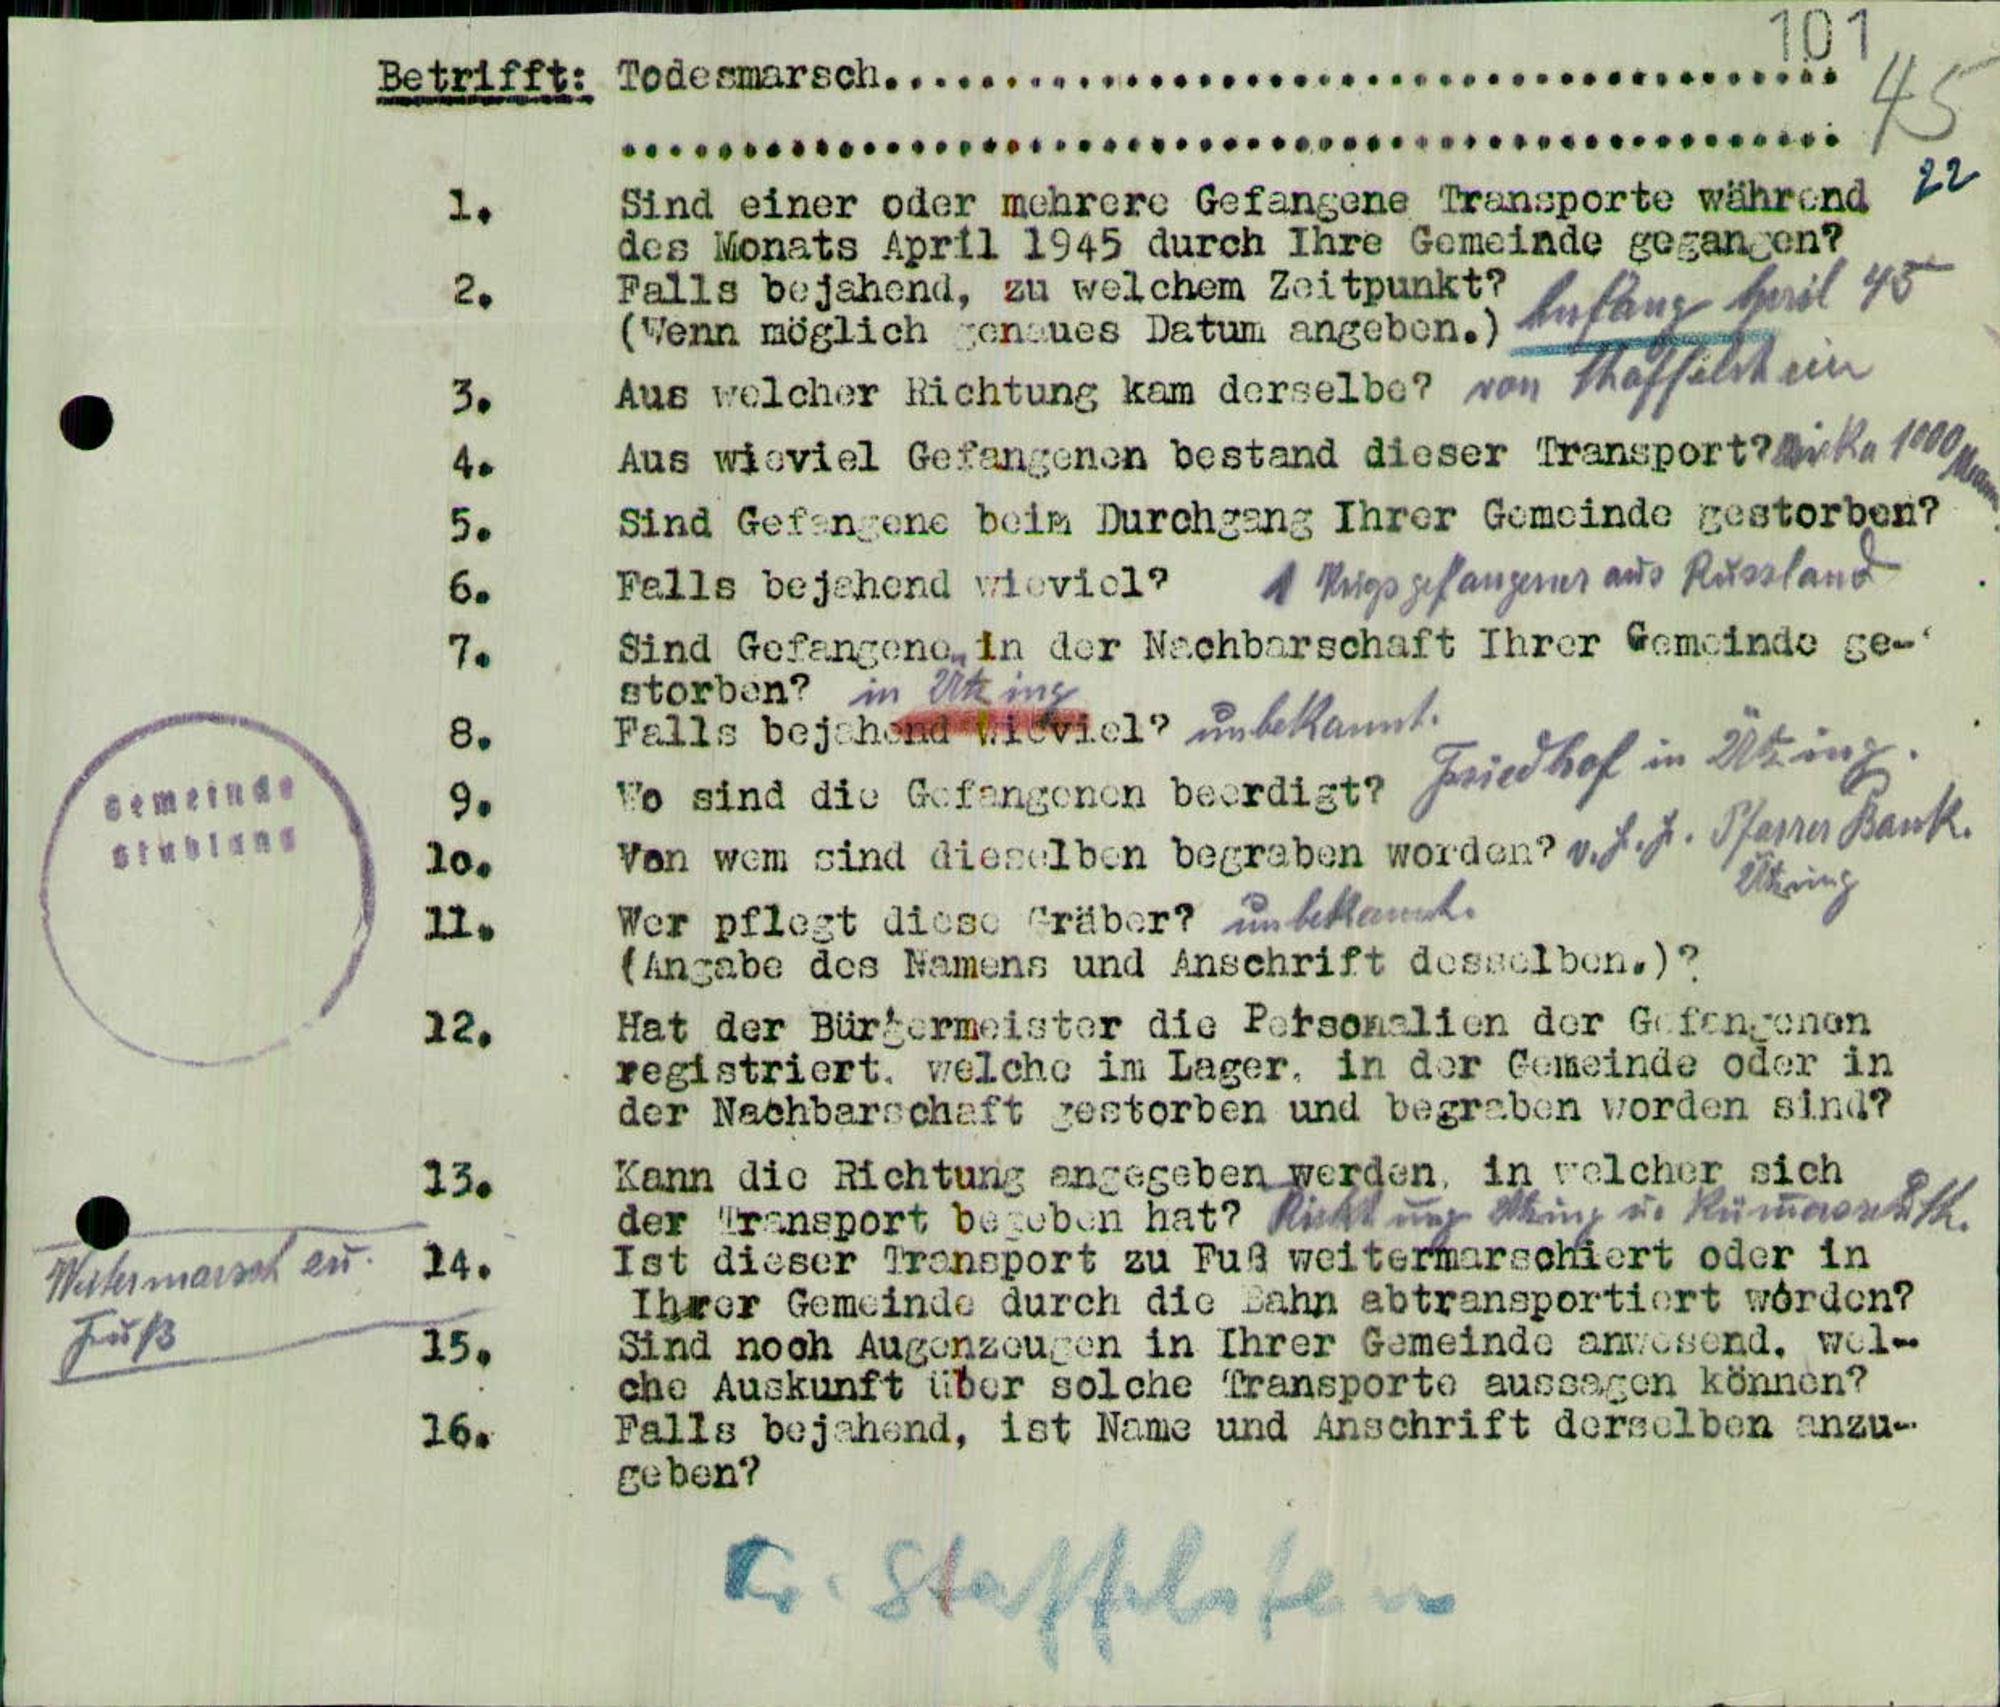 101
Betrifft: Todesmarsch........................................
45
..................................................
22
1. Sind einer oder mehrere Gefangene Transporte während
des Monats April 1945 durch Ihre Gemeinde gegangen?
2. Falls bejahend, zu welchem Zeitpunkt?
(Wenn möglich genaues Datum angeben.) Anfang April 45
3. Aus welcher Richtung kam derselbe? von Staffelstein
4. Aus wieviel Gefangenen bestand dieser Transport? Zirka 1000 Mann
5. Sind Gefangene beim Durchgang Ihrer Gemeinde gestorben?
6. Falls bejahend wieviel? 1 Kriegsgefangener aus Russland
7. Sind Gefangene in der Nachbarschaft Ihrer Gemeinde ge-
storben? in Ützing
8. Falls bejahend wieviel? unbekannt.
9. Wo sind die Gefangenen beerdigt? Friedhof in Ützing.
10. Von wem sind dieselben begraben worden? v. H. H. Pfarrer Bank.
Ützing
11. Wer pflegt diese Gräber? unbekannt.
(Angabe des Namens und Anschrift desselben.)?
12. Hat der Bürgermeister die Personalien der Gefangenen
registriert, welche im Lager, in der Gemeinde oder in
der Nachbarschaft gestorben und begraben worden sind?
13. Kann die Richtung angegeben werden, in welcher sich
der Transport begeben hat? Richtung Ützing u.
14. Ist dieser Transport zu Fuß weitermarschiert oder in
Ihrer Gemeinde durch die Bahn abtransportiert worden?
15. Sind noch Augenzeugen in Ihrer Gemeinde anwesend, wel-
che Auskunft über solche Transporte aussagen können?
16. Falls bejahend, ist Name und Anschrift derselben anzu-
geben?
Gemeinde
Stublang
Weitermarsch zu
Fuß
Kr. Staffelstein